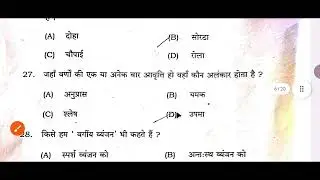 (A) दोहा (B) सोरठा
(C) चौपाई (D) रोला
27. जहाँ वर्णों की एक या अनेक बार आवृत्ति हो वहाँ कौन अलंकार होता है ?
(A) अनुप्रास (B) यमक
(C) श्लेष (D) उपमा
28. किसे हम ' वर्गीय व्यंजन' भी कहते हैं ?
(A) स्पर्श व्यंजन को (B) अन्तःस्थ व्यंजन को
6/20